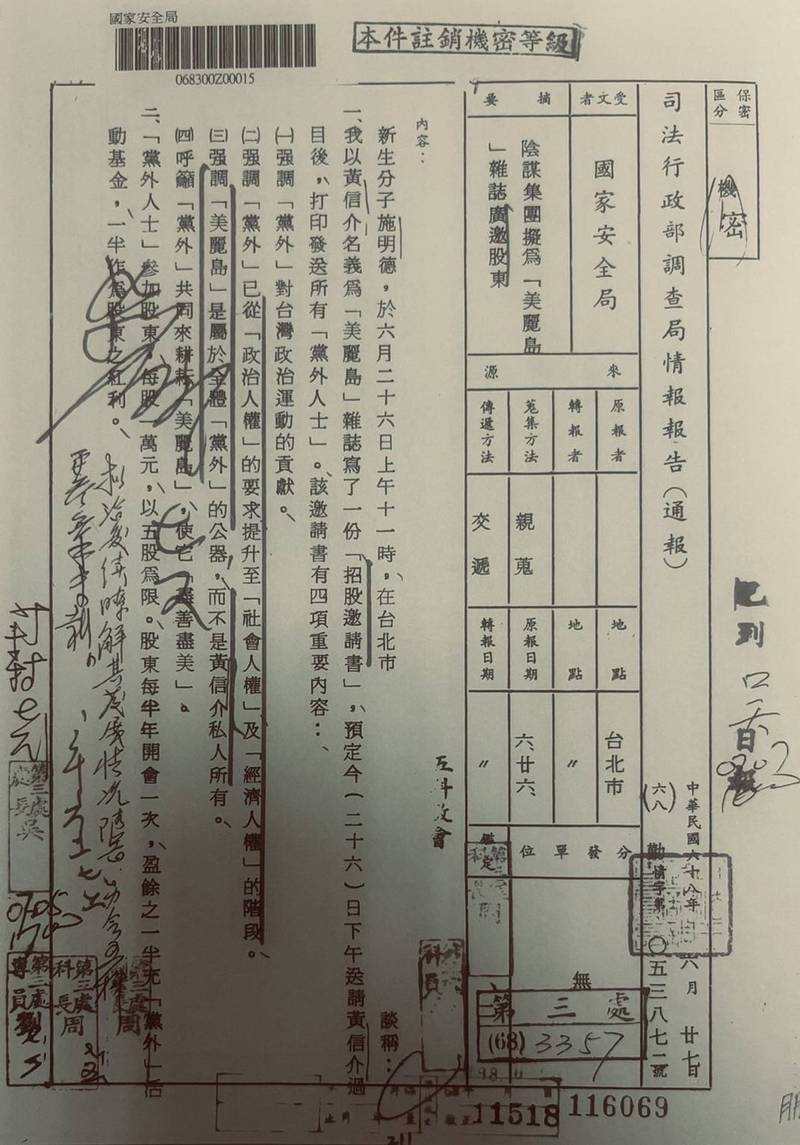 國家安全局
068300Z00015
本件註銷機密等級
保密區分
機密
司法行政部調查局情報報告(通報)
中華民國六十八年六月廿七日
(六八)
五三八七二號
受文者
國家安全局
摘要
陰謀集團擬為「美麗島
」雜誌廣邀股東
來源
原報者
轉報者
蒐集方法
親蒐
傳遞方法
交遞
地點
台北市
地點
〃
原報日期
六、廿六、
轉報日期
〃
分發單位
無
第三處
(68) 3357
內容:
新生分子施明德,於六月二十六日上午十一時,在台北市
談稱:
一、我以黃信介名義為「美麗島」雜誌寫了一份「招股邀請書」,預定今(二十六)日下午送請黃信介過
目後,打印發送所有「黨外人士」。該邀請書有四項重要內容:
㈠強調「黨外」對台灣政治運動的貢獻。
㈡強調「黨外」已從「政治人權」的要求提升至「社會人權」及「經濟人權」的階段。
㈢強調「美麗島」是屬於全體「黨外」的公器,而不是黃信介私人所有。
㈣呼籲「黨外」共同來耕耘「美麗島」,使它「盡善盡美」。
二、「黨外人士」參加股東,每股一萬元,以五股為限。股東每半年開會一次,盈餘之一半充「黨外」活
動基金,一半作為股東之紅利。
第三處
處長吳
第三處
科長周
第三處
專員
科員
11518
116069